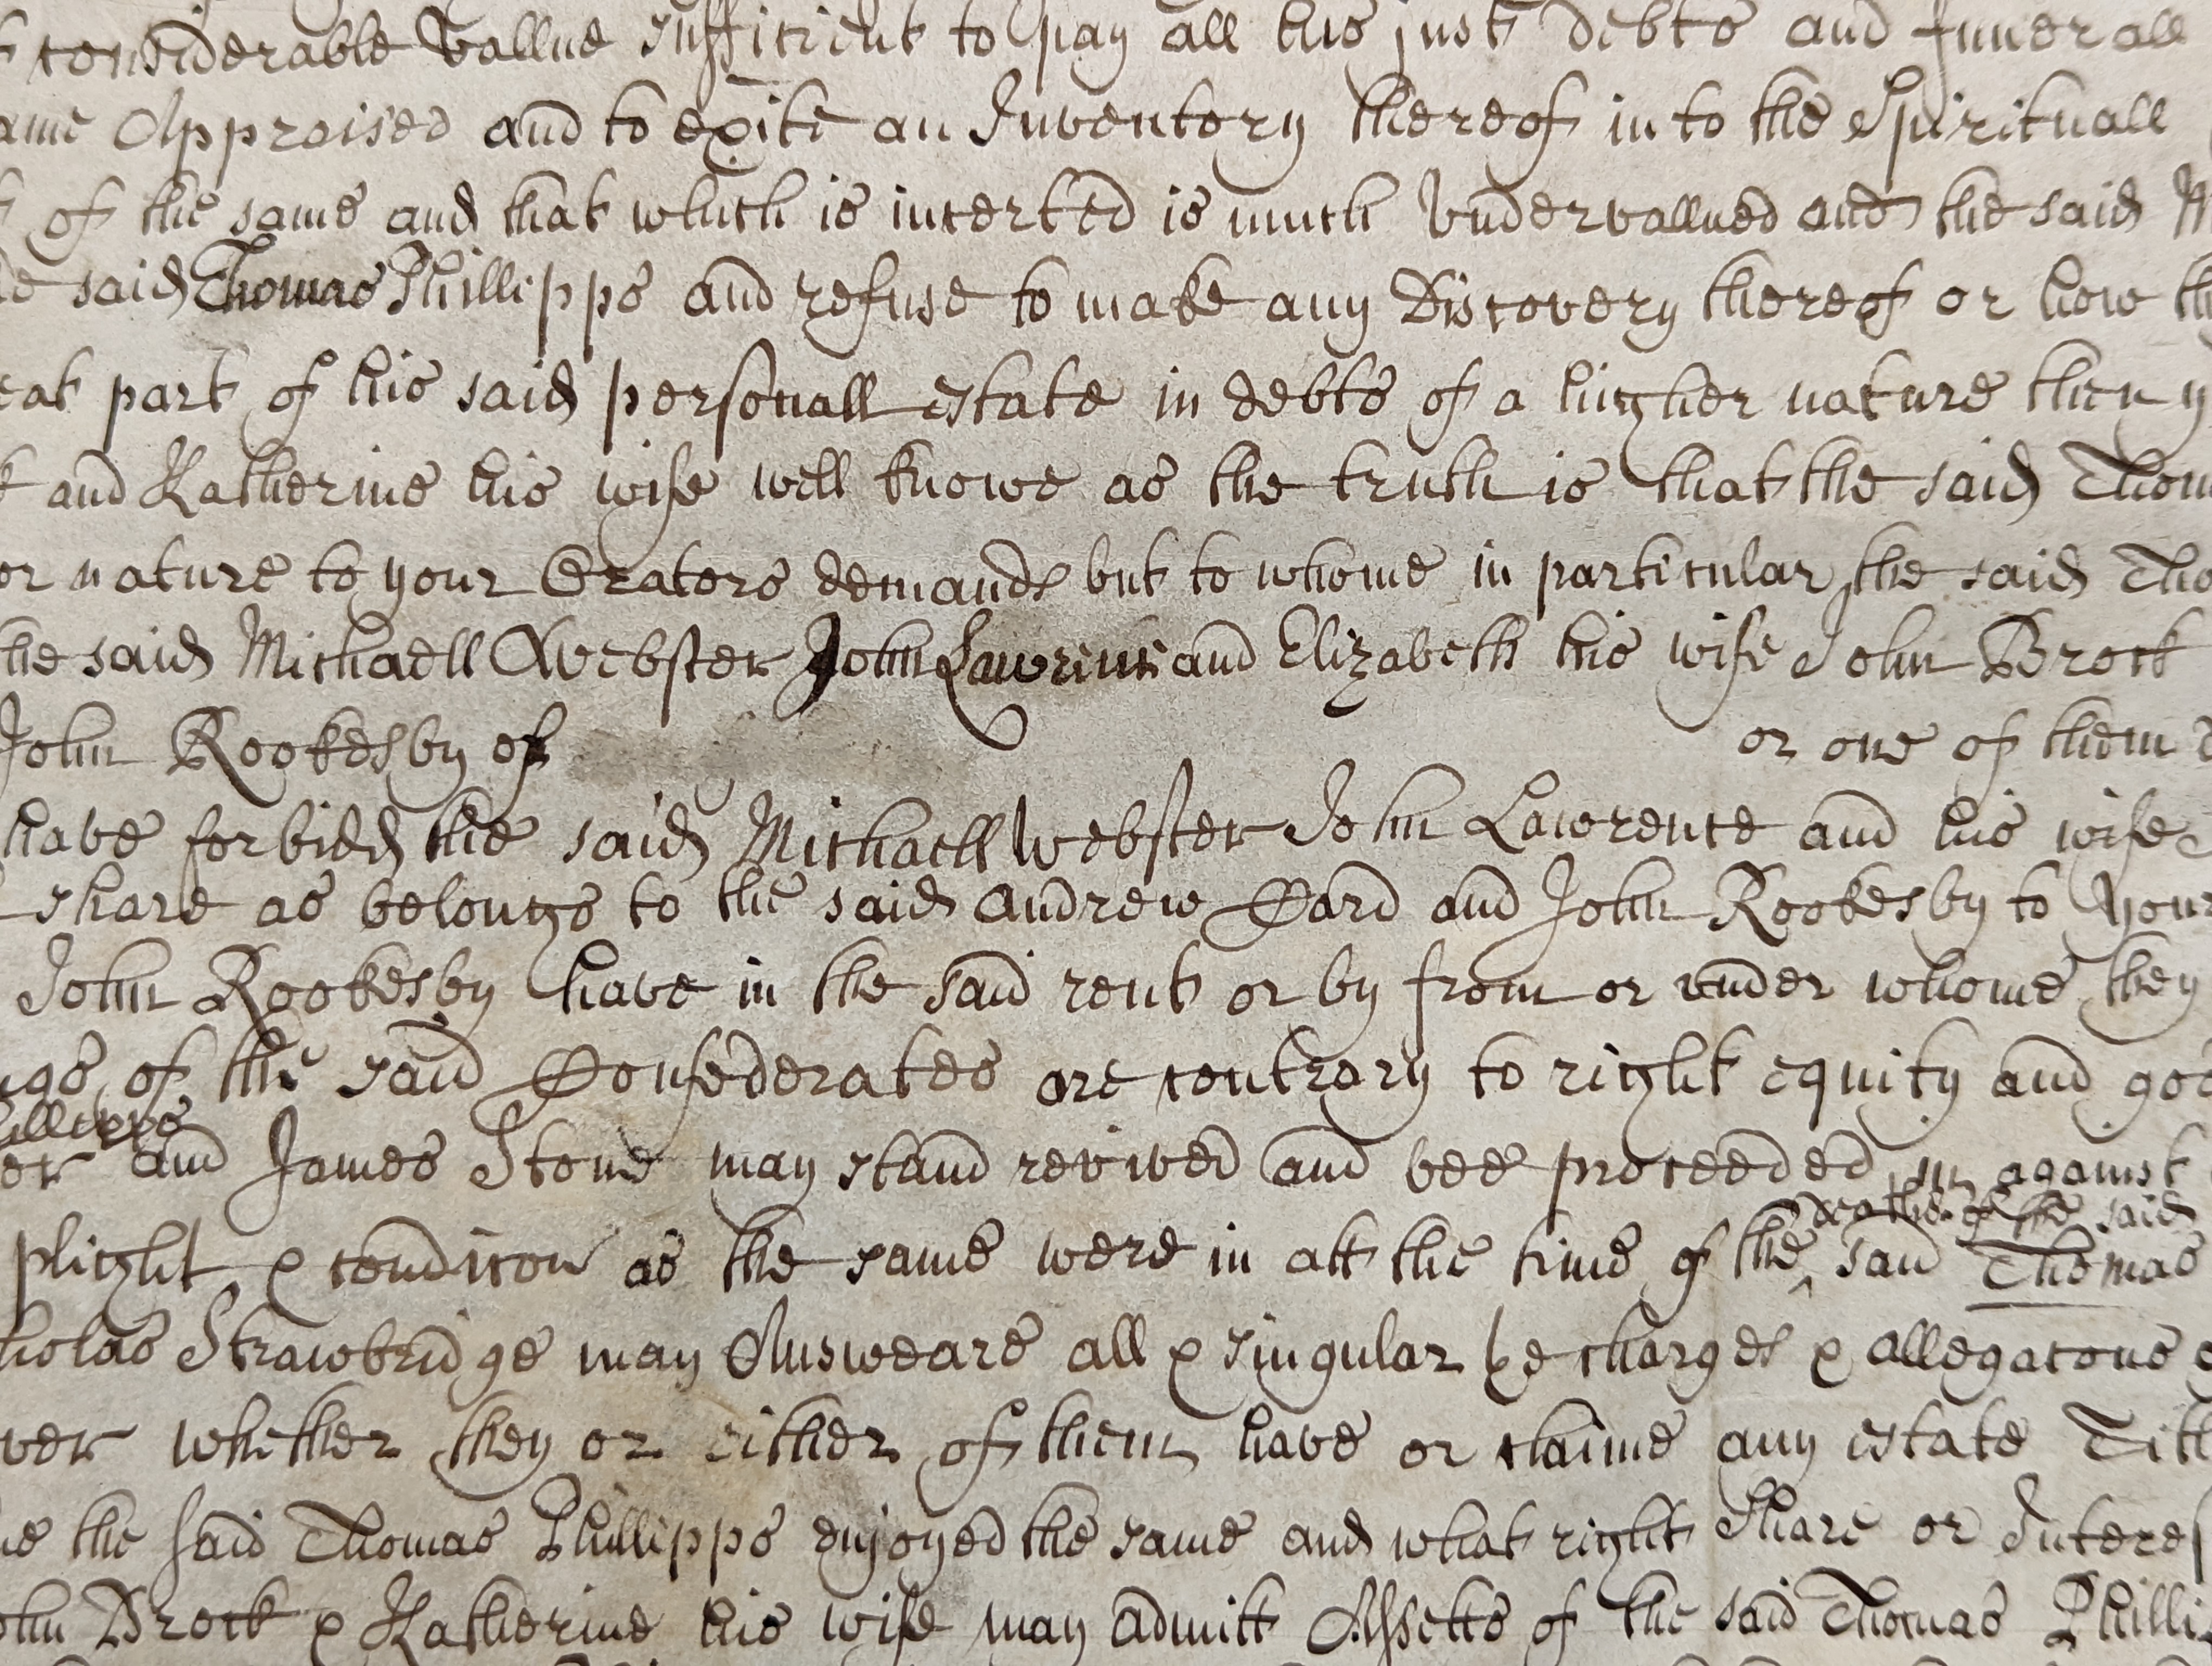 considerable vallue sufficient to pay all his just debts and funerall
ame Appraised and to exite an Inventory thereof into the Spirituall
of the same and that which is incerted is much vndervallued and the said M
e said Thomas Phillipps and refuse to make any Discovery thereof or how th
eat part of his said personall estate in debts of a higher nature then y
and Katherine his wife well knowe as the truth is that the said Thom
or nature to your Orators demands but to whome in particular the said Tho
he said Michaell Webster John Lawrence and Elizabeth his wife John Brock
John Rookesby of or one of them
have forbidd the said Michaell Webster John Lawrence and his wife
share as belongs to the said Andrew Card and John Rookesby to your
John Rookesby have in the said rent or by from or vnder whome they
ngs of the said Confederates are contrary to right equity and goo
illipps
er and James Stone may stand revived and bee proceeded in against
death of the said
plight & condicon as the same were in att the time of the ^ said Thomas
holas Strawbridge may Answeare all & singular þe charges & allegacons
ver whether they or either of them have or claime any estate Titl
e the said Thomas Phillipps enjoyed the same and what right share or Interes
ohn Brock & Katherine his wife may admitt Assetts of the said Thomas Philli